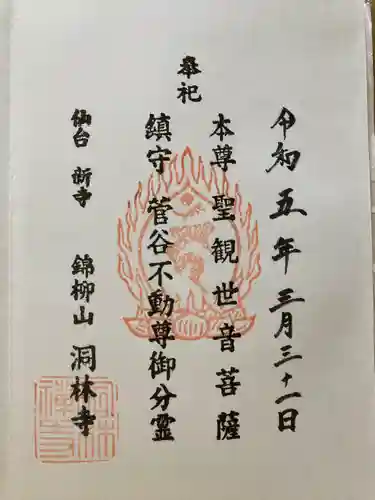 令和五年三月三十一日
奉祀
本尊 聖観世音菩薩
鎮守 菅谷不動尊御分霊
仙台 新寺 錦柳山 洞林寺
洞林
禅寺